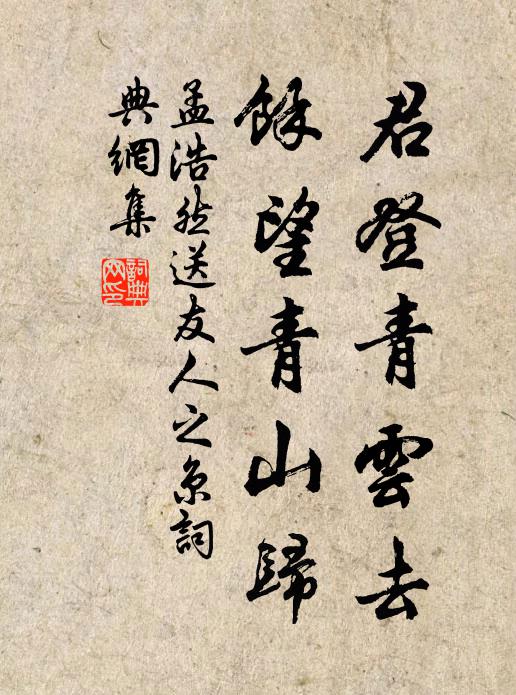 君登青雲去
餘望青山歸
孟浩然送友人之京詞
典網集
詞典
网印